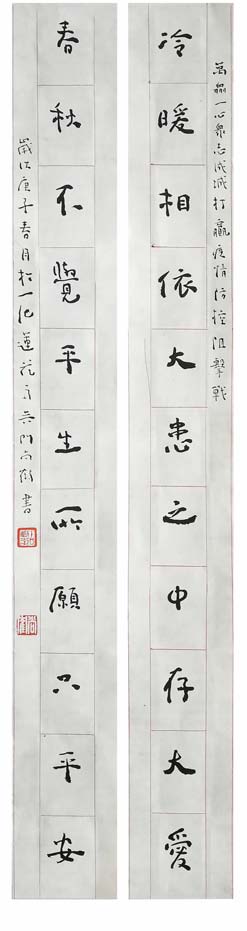 萬衆一心衆志成城打贏疫情防控阻擊戰
冷暖相依大患之中存大愛
春秋不覺平生所願只平安
歲次庚子春月於一池蓮花
書